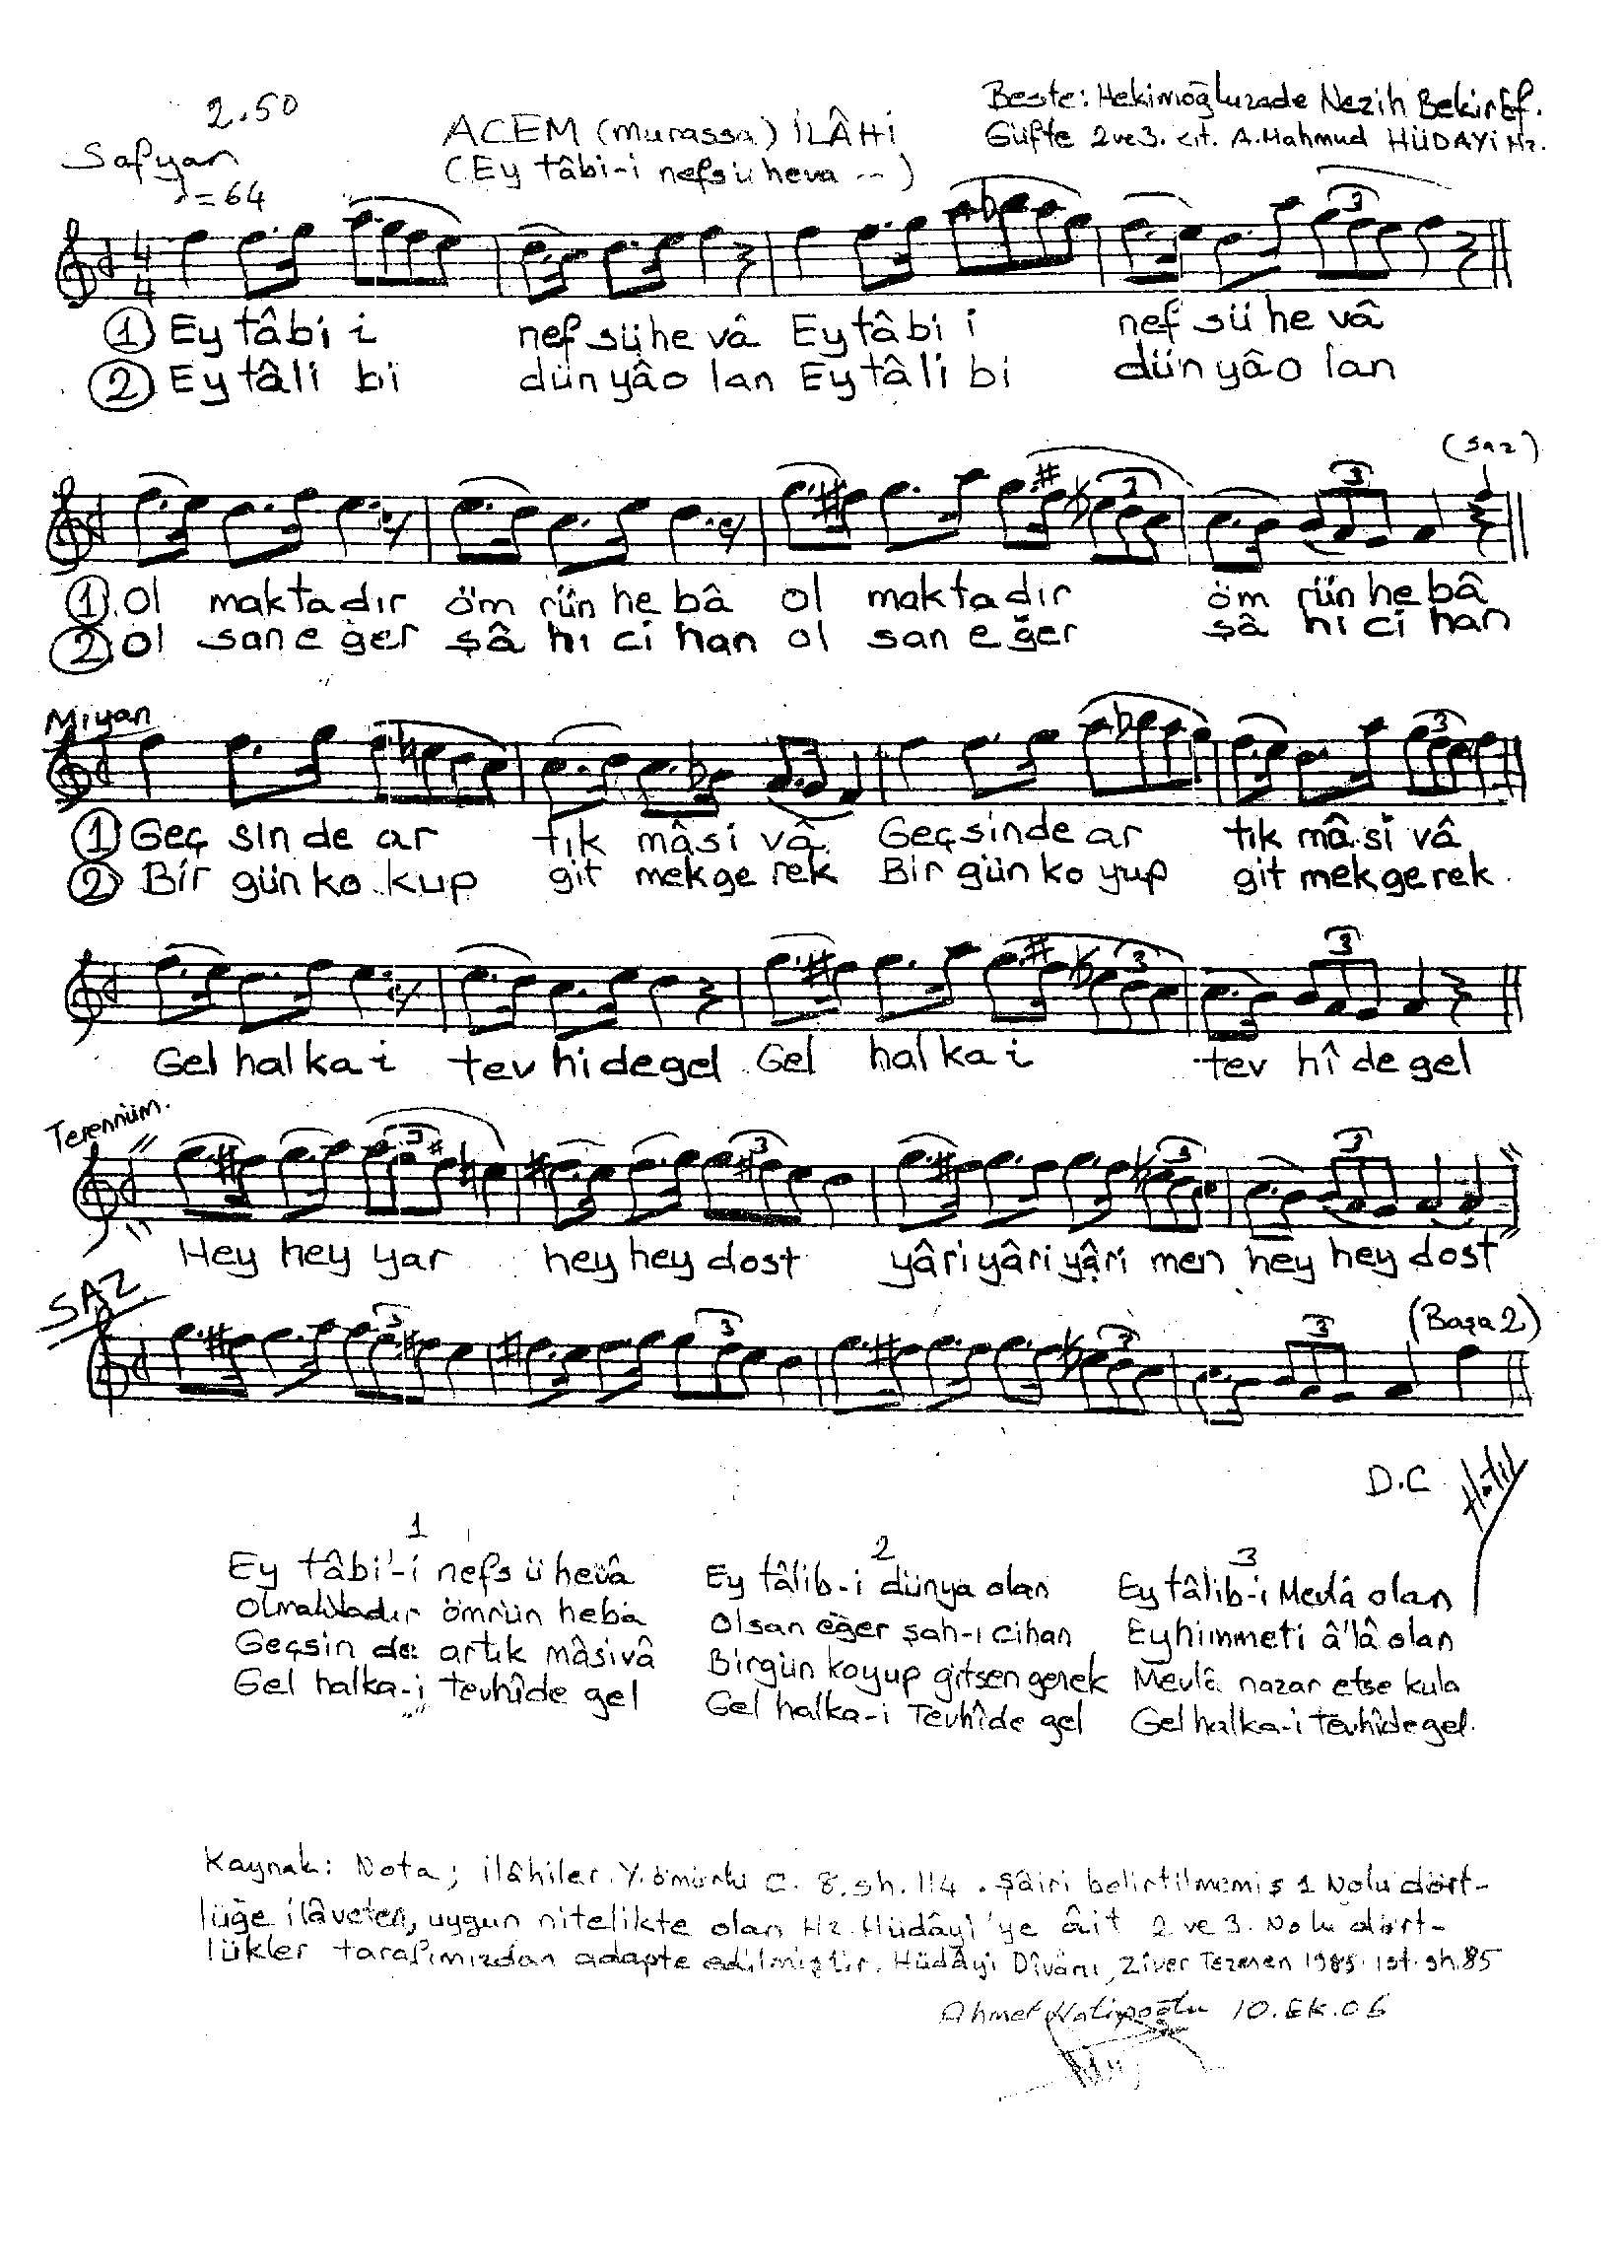 2.50
Safyan
♩=64
ACEM (murassa) İLÂHİ
(Ey tâbi-i nefsü heva ...)
Beste: Hekimoğluzade Nezih Bekir Ef.
Güfte 2 ve 3. kıt. A. Mahmud HÜDAYİ Hz.
① Ey tâ bi i nef sü he vâ Ey tâ bi i nef sü he vâ
② Ey tâ li bi dün yâ o lan Ey tâ li bi dün yâ o lan
(Saz)
① Ol mak ta dır öm rün he bâ ol mak ta dır öm rün he bâ
② ol san e ğer şâ hı ci han ol san e ğer şâ hı ci han
Miyan
① Geç sin de ar tık mâ si vâ Geç sin de ar tık mâ si vâ
② Bir gün ko kup git mek ge rek Bir gün ko yup git mek ge rek
Gel hal ka i tev hi de gel Gel hal ka i tev hî de gel
Terennüm.
Hey hey yar hey hey dost yâri yâri yâri men hey hey dost
SAZ
(Başa 2)
D.C
1
Ey tâbi'-i nefs ü hevâ
Olmaktadır ömrün heba
Geçsin de artık mâsivâ
Gel halka-i tevhîde gel
2
Ey tâlib-i dünya olan
Olsan eğer şah-ı cihan
Birgün koyup gitsen gerek
Gel halka-i Tevhîde gel
3
Ey tâlib-i Mevlâ olan
Ey himmeti â'lâ olan
Mevlâ nazar etse kula
Gel halka-i tevhîde gel.
Kaynak: Nota; ilâhiler. Y. ömürlü C. 8. sh. 114. Şâiri belirtilmemiş 1 Nolu dört-
lüğe ilâveten, uygun nitelikte olan Hz. Hüdâyî'ye âit 2 ve 3. Nolu dört-
lükler tarafımızdan adapte edilmiştir. Hüdâyi Dîvânı, Ziver Tezeren 1985. ist. sh. 85
Ahmet Hatipoğlu 10. Ek. 06